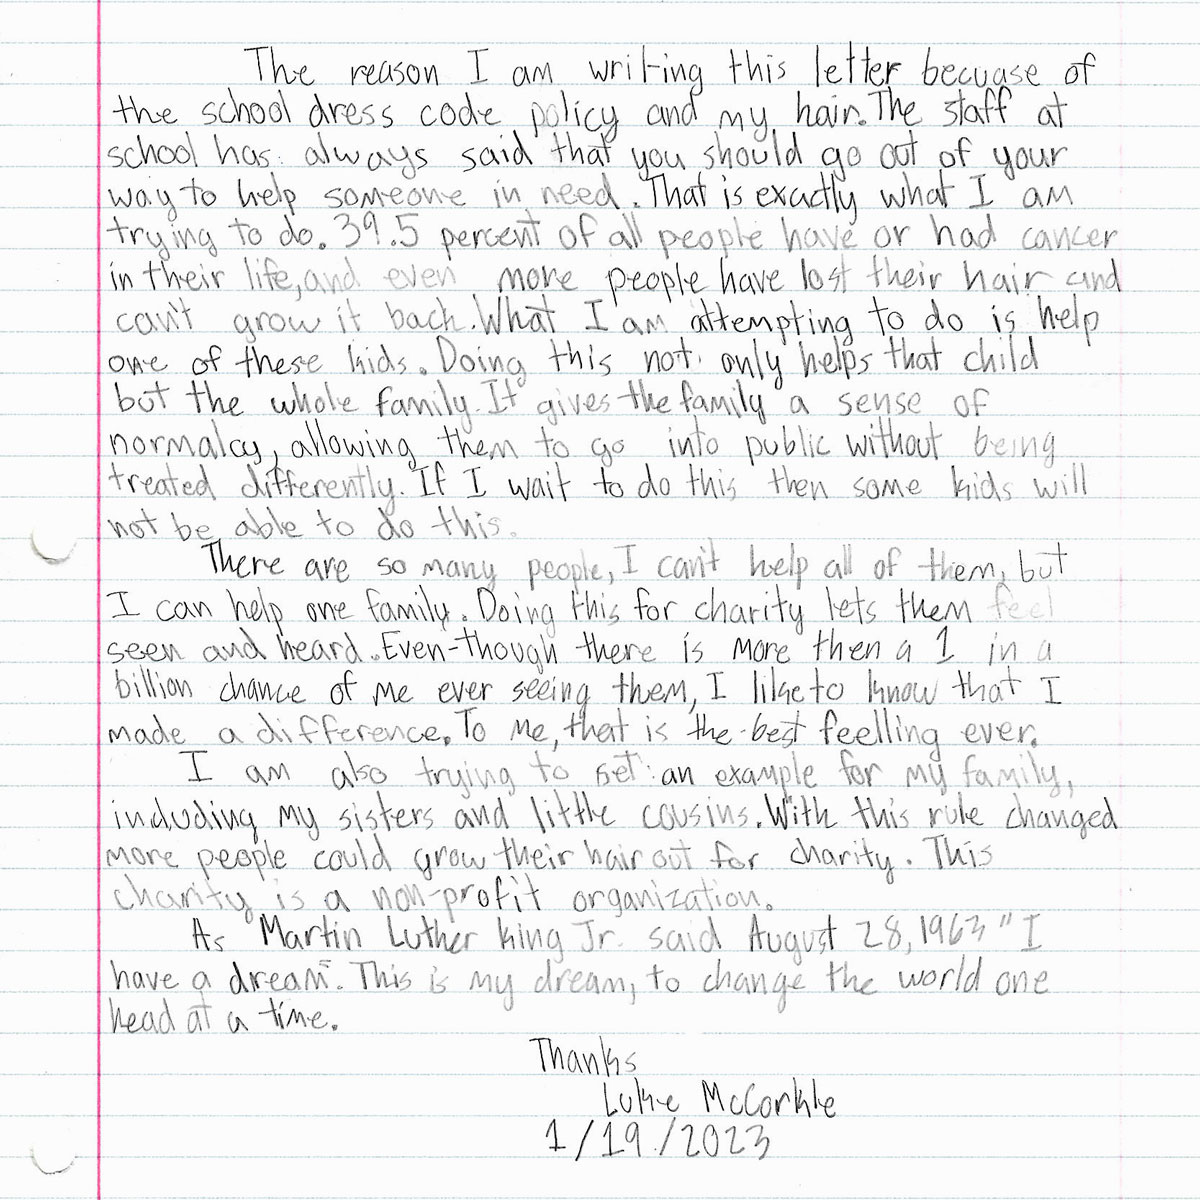 The reason I am writing this letter becuase of
the school dress code policy and my hair. The staff at
school has always said that you should go out of your
way to help someone in need. That is exactly what I am
trying to do. 39.5 percent of all people have or had cancer
in their life, and even more people have lost their hair and
can't grow it back. What I am attempting to do is help
one of these kids. Doing this not only helps that child
but the whole family. It gives the family a sense of
normalcy, allowing them to go into public without being
treated differently. If I wait to do this then some kids will
not be able to do this.
There are so many people, I can't help all of them, but
I can help one family. Doing this for charity lets them feel
seen and heard. Even-though there is more then a 1 in a
billion chance of me ever seeing them, I like to know that I
made a difference. To me, that is the best feelling ever.
I am also trying to set an example for my family,
including my sisters and little cousins. With this rule changed
more people could grow their hair out for charity. This
charity is a non-profit organization.
As Martin Luther king Jr. said August 28, 1963 "I
have a dream". This is my dream, to change the world one
head at a time.
Thanks
Luke McCorkle
1/19/2023